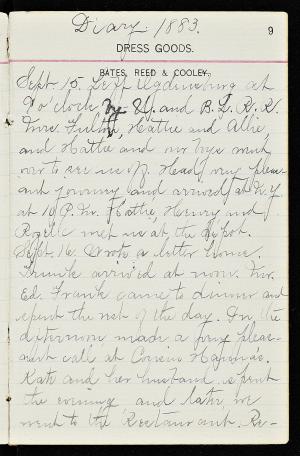 Diary. 1883.
9
DRESS GOODS.
BATES, REED & COOLEY.
Sept. 15. Left Ogdensburg at
9 o'clock and
Mrs. Hattie and Allie,
and Hattie and our boys went
over to see us off. Had a very pleas-
ant journey and arrived at N.Y
at 10 P.M. Hattie, Henry and
met us at the depot.
Sept. 16. Wrote a letter home.
Trunk arrived at noon. Mr.
Ed. Frank came to dinner and
spent the rest of the day. In the
afternoon made a pleas-
ant call at
Kate and her husband spent
the evening and later we
went to the Restaurant. Re-